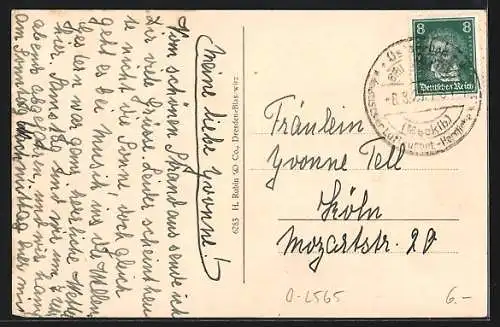 Meine liebe Yvonne!
Vom schönen Strand aus sende ich
Dir viele Grüsse. Leider scheint heu
te nicht die Sonne, doch gleich
geht es bei Musik ins Wellen
Gestern war ganz herrliches Wetter
hier. Samstag sind wir um
abend abgefahren und war
am Sonntag Nachmittag hier mit
6283 H. Rubin & Co., Dresden-Blasewitz
8 8
Deutsches Reich
(Meckib)
Fräulein
Yvonne Tell
Köln
Mozartstr. 20
0-2565
6.-